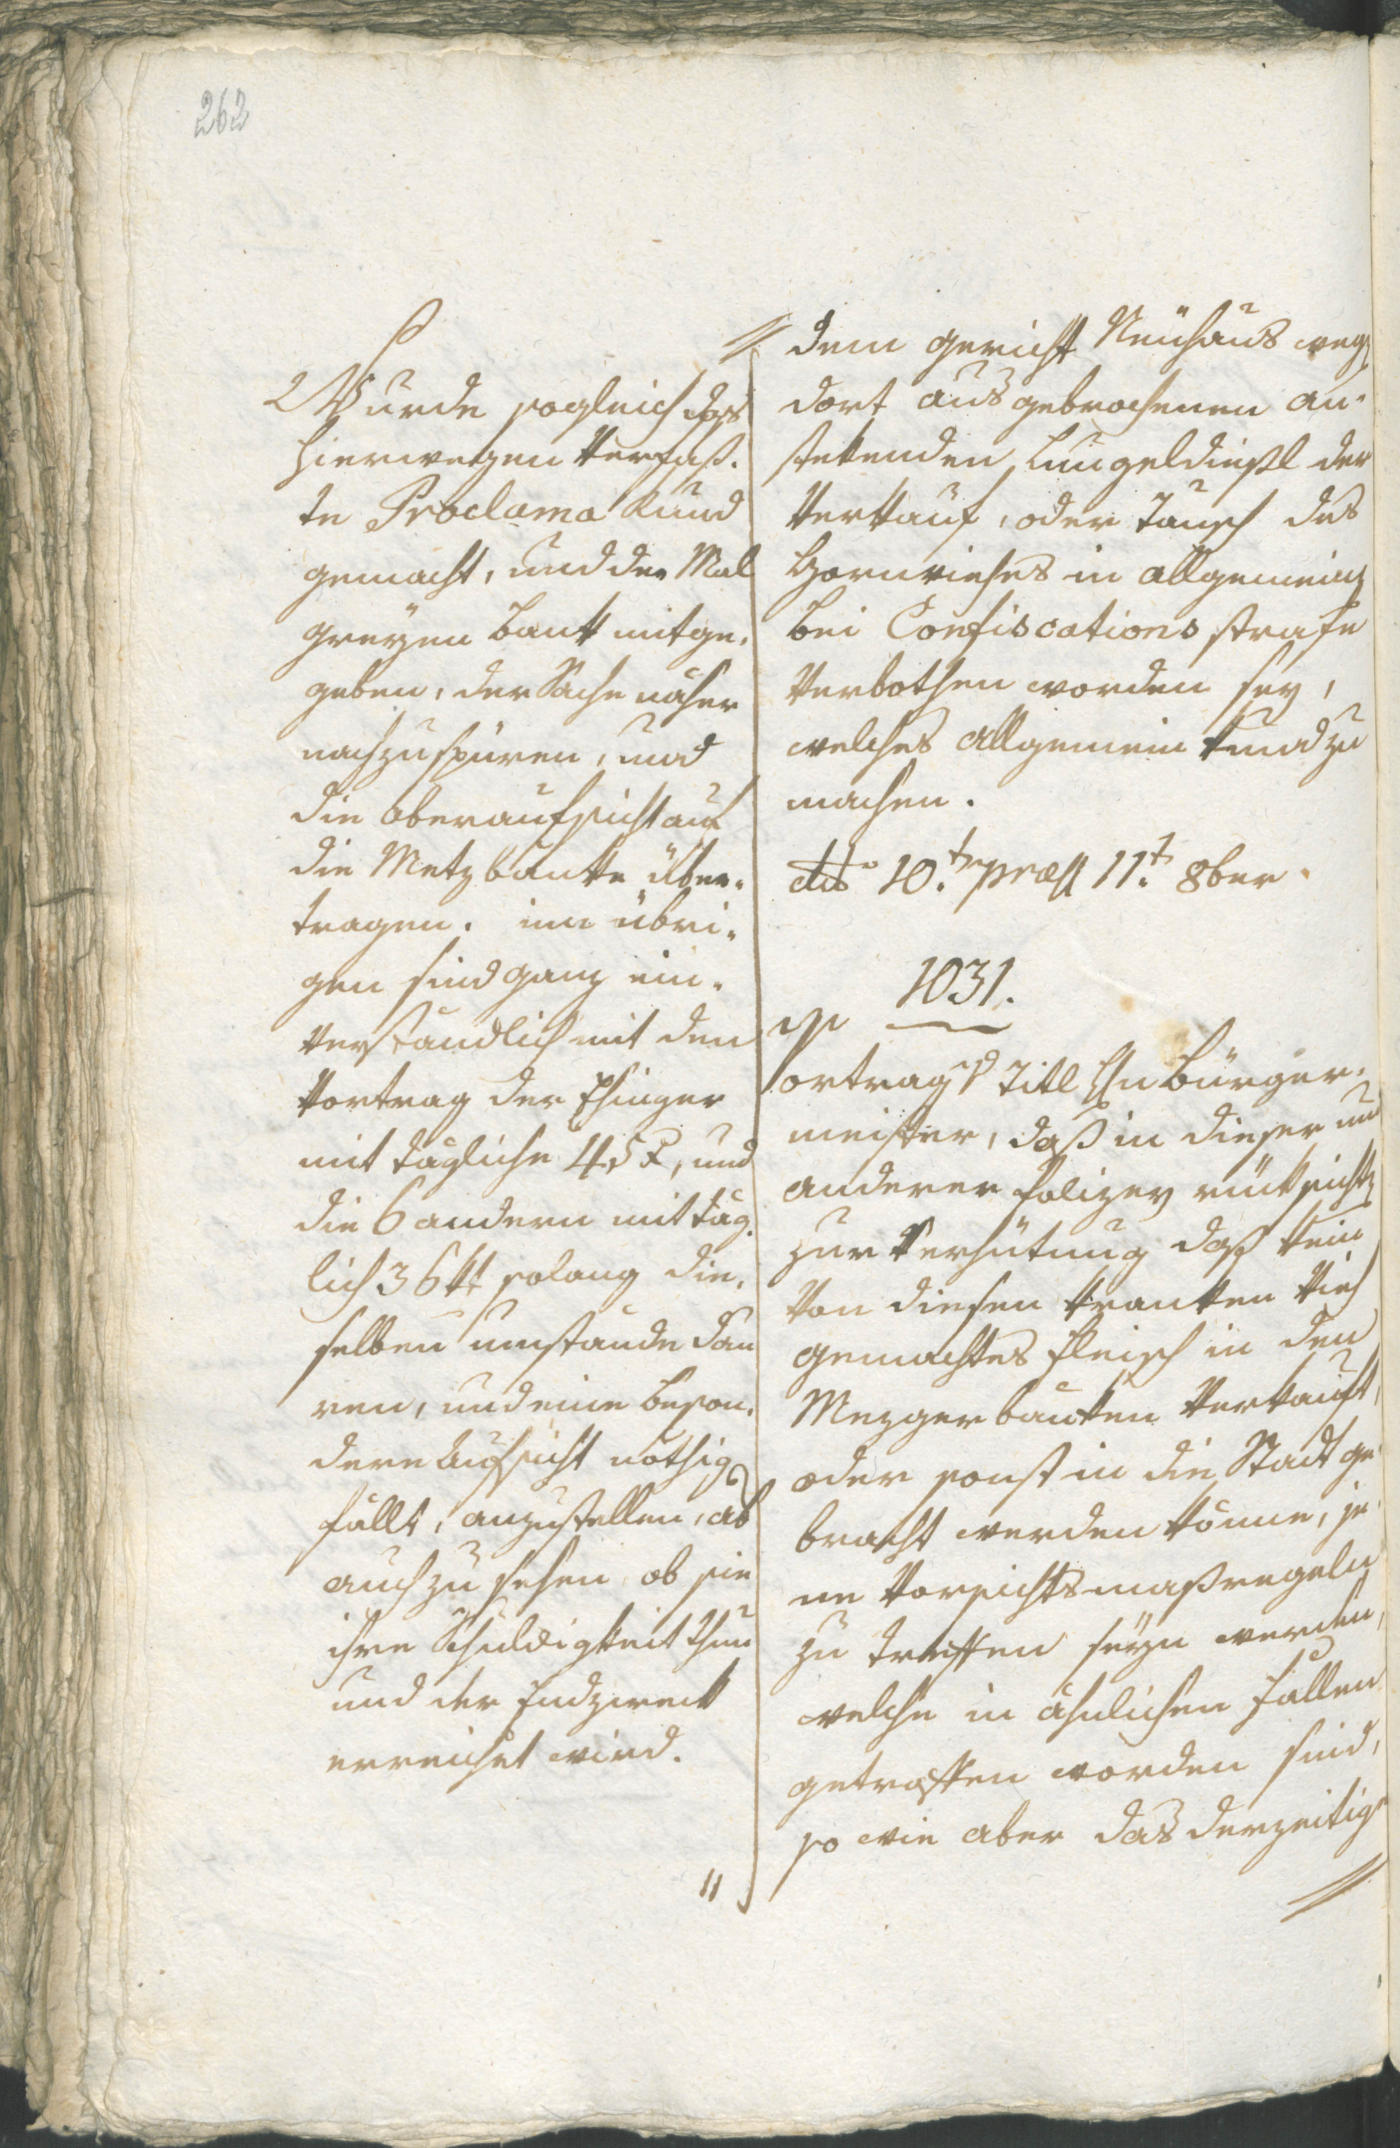 262
Wurde sogleich das
hierwegen verfaß¬
te Proclama kund
gemacht, und den Mal
greyen bank mitge¬
geben, der Sache näher
nachzuspüren, und
die oberaufsicht auf
die Metzbankh über¬
tragen. im übri¬
gen sind ganz ein¬
verständlich mit dem
Vortrag der
mit täglich 45 x, und
die 6 andern mit täg¬
lich 36 kr solang die¬
selben umstände dau
ren, und eine beson¬
dere Aufsicht nöthig
fällt, anzustellen, als
auch zu sehen ob sie
ihre Schuldigkeit thun
und der Endzweck
erreichet wird.
"
// dem gericht Neühaus weg
dort ausgebrochenen an¬
stekenden Lungeldießl der
Verkauf, oder Tausch des
Hornviehes in allgemein
bei Confiscations strafe
verbothen worden sey,
welches allgemein kund zu
machen.
dto 10t. præs 11t. 8ber.
1031.
Vortrag Titl Hn Bürger¬
meister, daß in dieser und
anderer Polizey rüksicht
zur Verhütung daß kein
von diesen kranken Vieh
gemachtes Fleisch in den
Mezgerbänken verkauft,
oder sonst in die Stadt ge¬
bracht werden könne, je¬
ne Vorsichtsmaßregeln
zu treffen seyn werden,
welche in ähnlichen Fällen
getroffen worden sind,
so wie aber das derzeitig
//